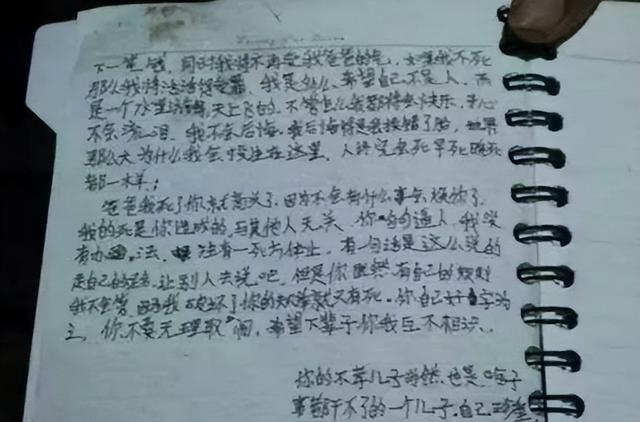 下一笔钱,同时我将不再受我爸爸的气,如果我不死
那么我将活活得受罪,我是多么希望自己不是人,而
是一个水里游的,天上飞的,不管怎么我都将会快乐,开心
不会流泪,我不会后悔,我后悔的是我投错了胎,世界
那么大为什么我会投生在这里,人终究会死早死晚死
都一样;
爸爸我死了你就高兴了,因为不会有什么事去烦你了,
我的死是你造成的,与其他人无关,你句句逼人,我没
有办法,只有一死方休止,有一句话是这么说的
走自己的路,让别人去说吧,但是你既然有自己的规则
我不会管,因为我破坏了你的规则就只有死。你自己好自为
之,你不要无理取闹,希望下辈子你我互不相识。
你的不孝儿子 也是 儿子
事都干不了的一个儿子,自己